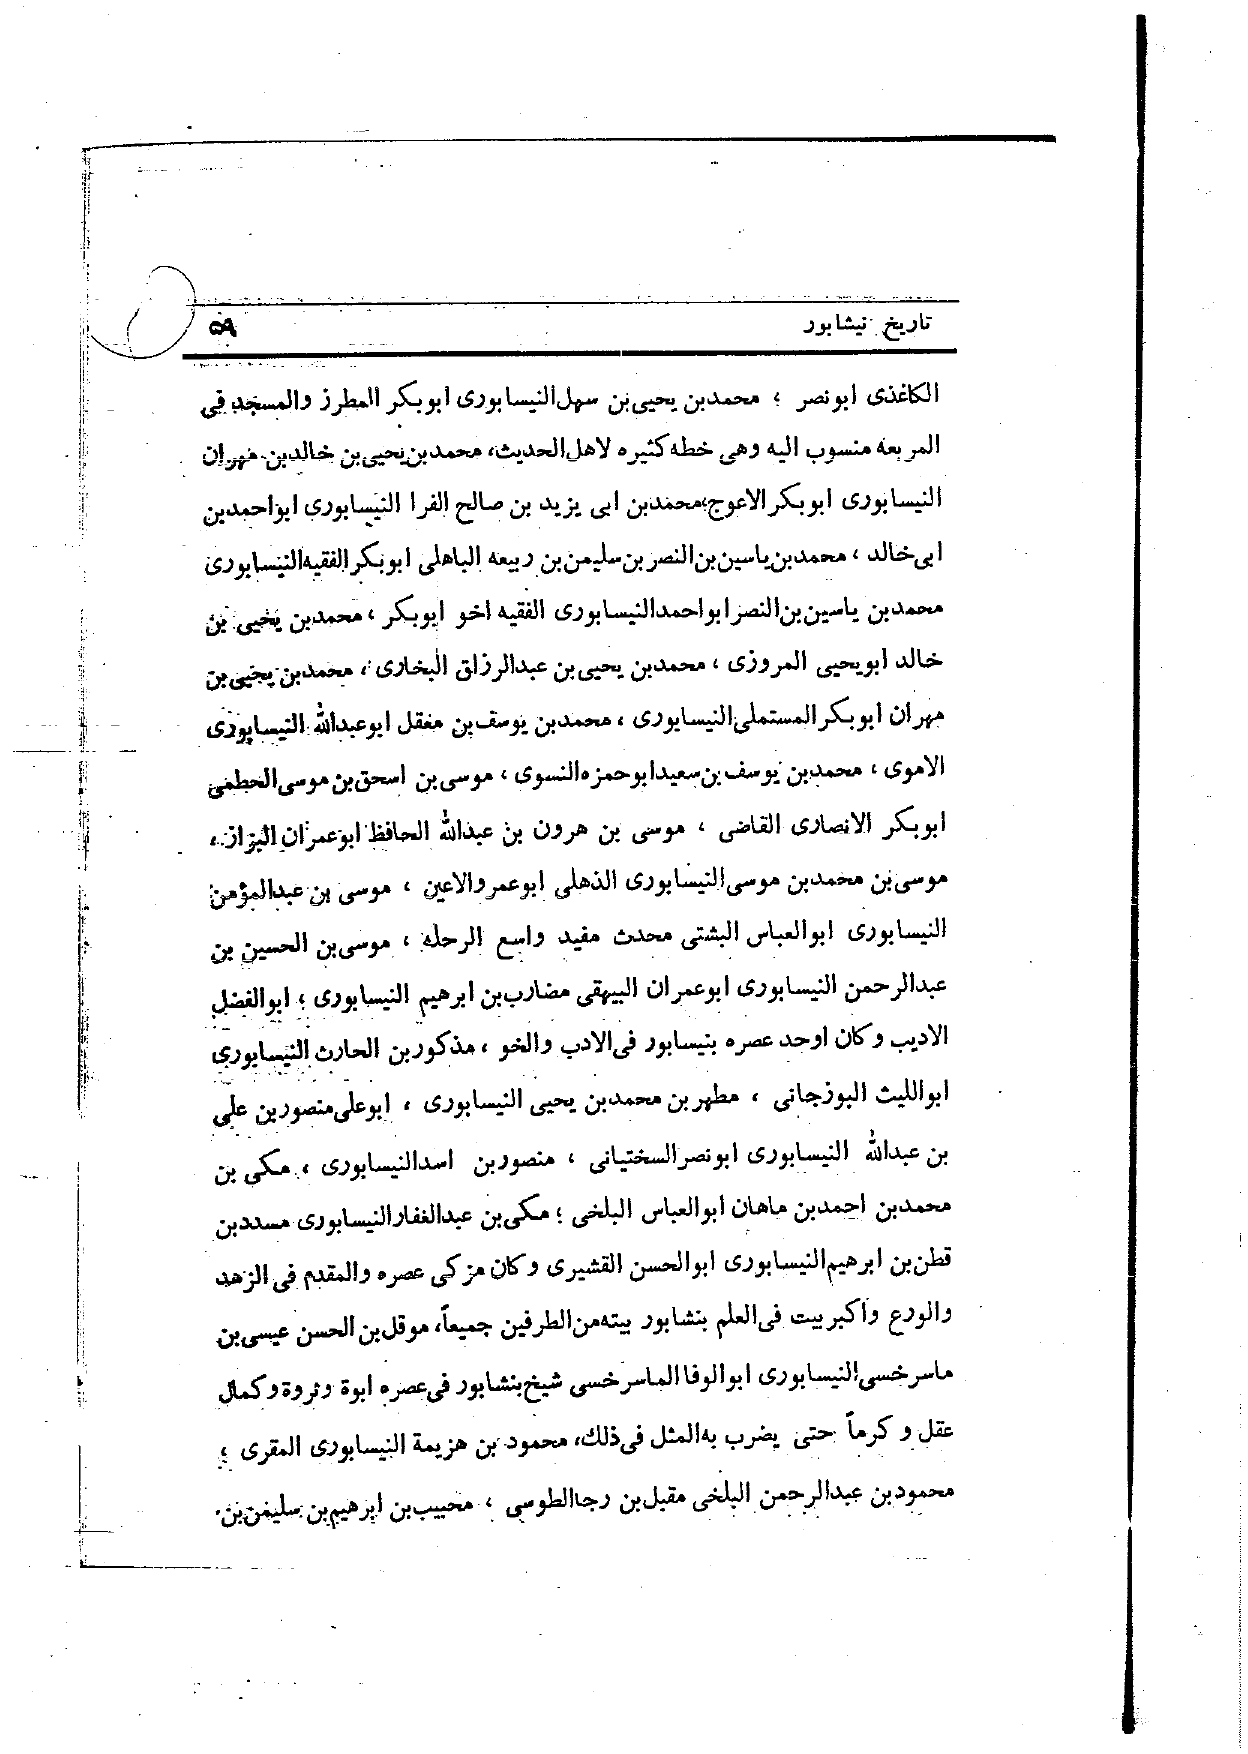 تاریخ نیشابور ۵۹
الکاغذی ابونصر ، محمدبن یحیی‌بن سهل‌النیسابوری ابوبکر المطرز والمسجد فی
المربعه منسوب الیه وهی خطه کثیره لاهل‌الحدیث، محمدبن‌یحیی‌بن خالدبن مهران
النیسابوری ابوبکر الاعوج،محمدبن ابی یزید بن صالح الفرا النیسابوری ابواحمدبن
ابی‌خالد ، محمدبن‌یاسین‌بن‌النصر‌بن‌سلیمن‌بن ربیعه الباهلی ابوبکر‌الفقیه‌النیسابوری
محمدبن یاسین‌بن‌النصر ابواحمدالنیسابوری الفقیه اخو ابوبکر ، محمدبن یحیی بن
خالد ابویحیی المروزی ، محمدبن یحیی‌بن عبدالرزاق البخاری ، محمدبن یحیی‌بن
مهران ابوبکر المستملی‌النیسابوری ، محمدبن یوسف‌بن معقل ابوعبدالله النیسابوری
الاموی ، محمدبن یوسف‌بن‌سعیدابوحمزه‌النسوی ، موسی‌بن اسحق‌بن‌موسی‌الخطمی
ابوبکر الانصاری القاضی ، موسی بن هرون بن عبدالله الحافظ ابوعمران البزاز ،
موسی‌بن محمدبن موسی‌النیسابوری الذهلی ابوعمروالاعین ، موسی بن عبدالمؤمن
النیسابوری ابوالعباس البشتی محدث مفید واسع الرحله ، موسی‌بن الحسین بن
عبدالرحمن النیسابوری ابوعمران البیهقی مضارب‌بن ابرهیم النیسابوری ؛ ابوالفضل
الادیب وکان اوحد عصره بنیسابور فی‌الادب والخو ، مذکوربن الحارث النیسابوری
ابواللیث البوزجانی ، مطهربن محمدبن یحیی النیسابوری ، ابوعلی‌منصوربن علی
بن عبدالله النیسابوری ابونصرالسختیانی ، منصوربن اسدالنیسابوری ، مکی بن
محمدبن احمدبن ماهان ابوالعباس البلخی ؛ مکی‌بن عبدالغفارالنیسابوری مسددبن
قطن‌بن ابرهیم‌النیسابوری ابوالحسن القشیری وکان مزکی عصره والمقدم فی الزهد
والورع واکبر بیت فی‌العلم بنشابور بیته‌من‌الطرفین جمیعاً، موقل‌بن الحسن عیسی‌بن
ماسرخسی‌النیسابوری ابوالوفا الماسرخسی شیخ‌بنشابور فی‌عصره ابوة وثروة وکمال
عقل و کرماً حتی یضرب به‌المثل فی‌ذلك، محمود بن هزیمة النیسابوری المقری ؛
محمودبن عبدالرحمن البلخی مقبل‌بن رجاالطوسی ، محییب‌بن ابرهیم‌بن سلیمن‌بن